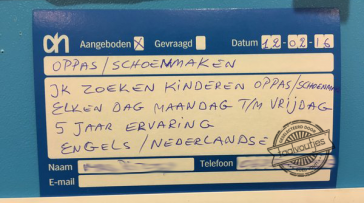 ah Aangeboden X Gevraagd Datum 12-02-16
OPPAS/SCHOENMAKEN
IK ZOEKEN KINDEREN OPPAS/SCHOENMA
ELKEN DAG MAANDAG T/M VRIJDAG
5 JAAR ERVARING
ENGELS/NEDERLANDSE
GESIGNALEERD DOOR
Taalvoutjes
Naam Telefoon
E-mail